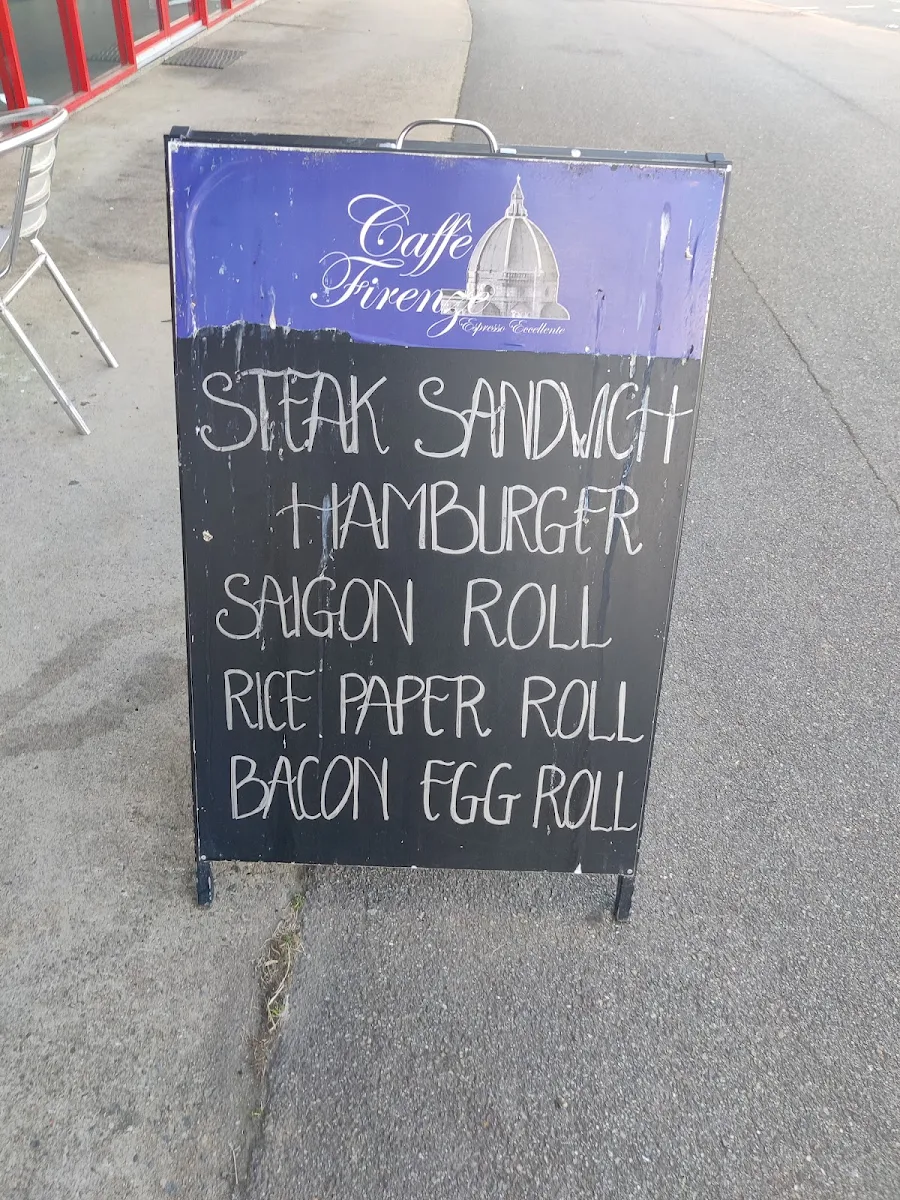 Caffè
Firenze
Espresso Eccellente
STEAK SANDWICH
HAMBURGER
SAIGON ROLL
RICE PAPER ROLL
BACON EGG ROLL